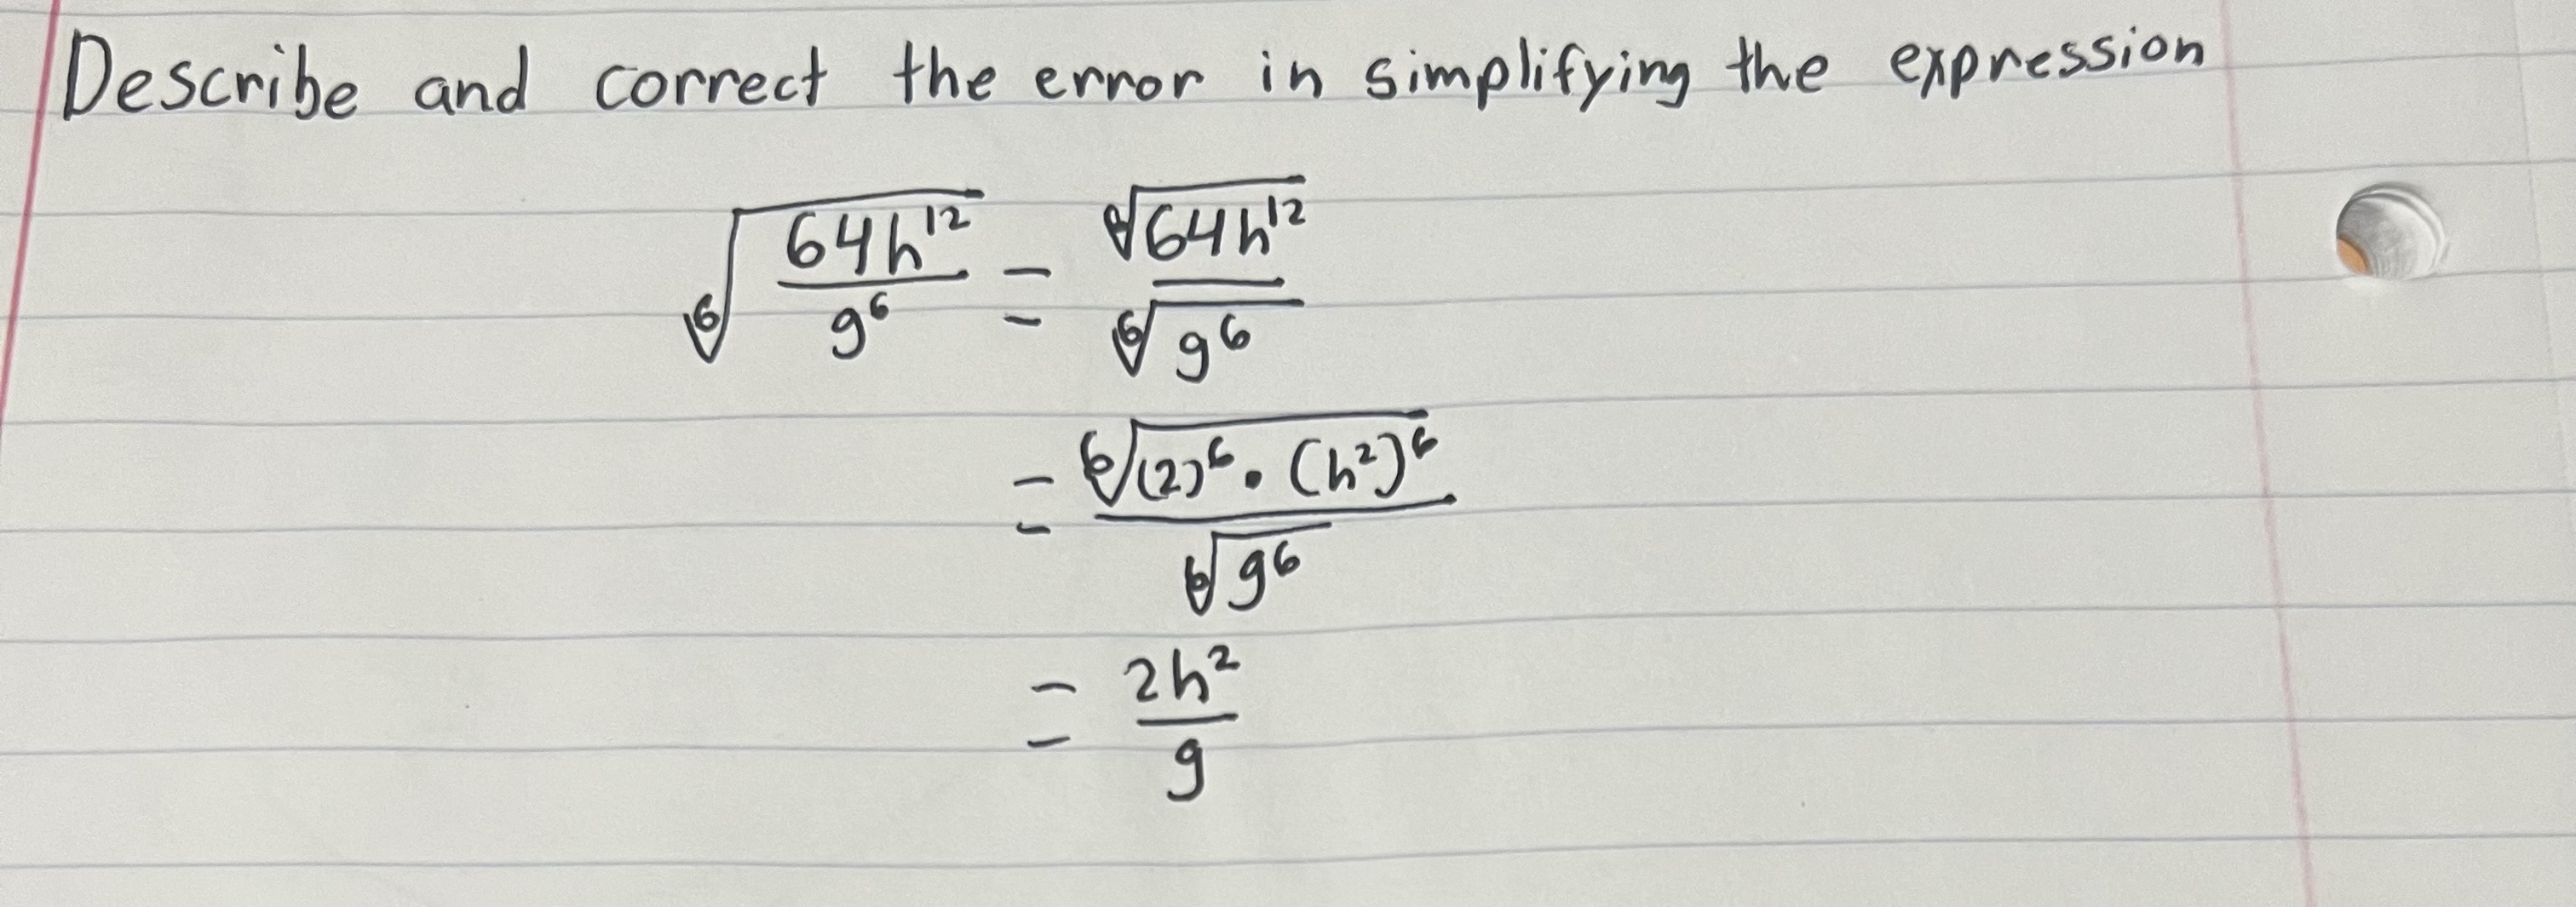 Describe and correct the error in simplifying the expression
\sqrt[6]{\frac{64h^{12}}{g^6}} = \frac{\sqrt[6]{64h^{12}}}{\sqrt[6]{g^6}}
= \frac{\sqrt[6]{(2)^6 \cdot (h^2)^6}}{\sqrt[6]{g^6}}
= \frac{2h^2}{g}